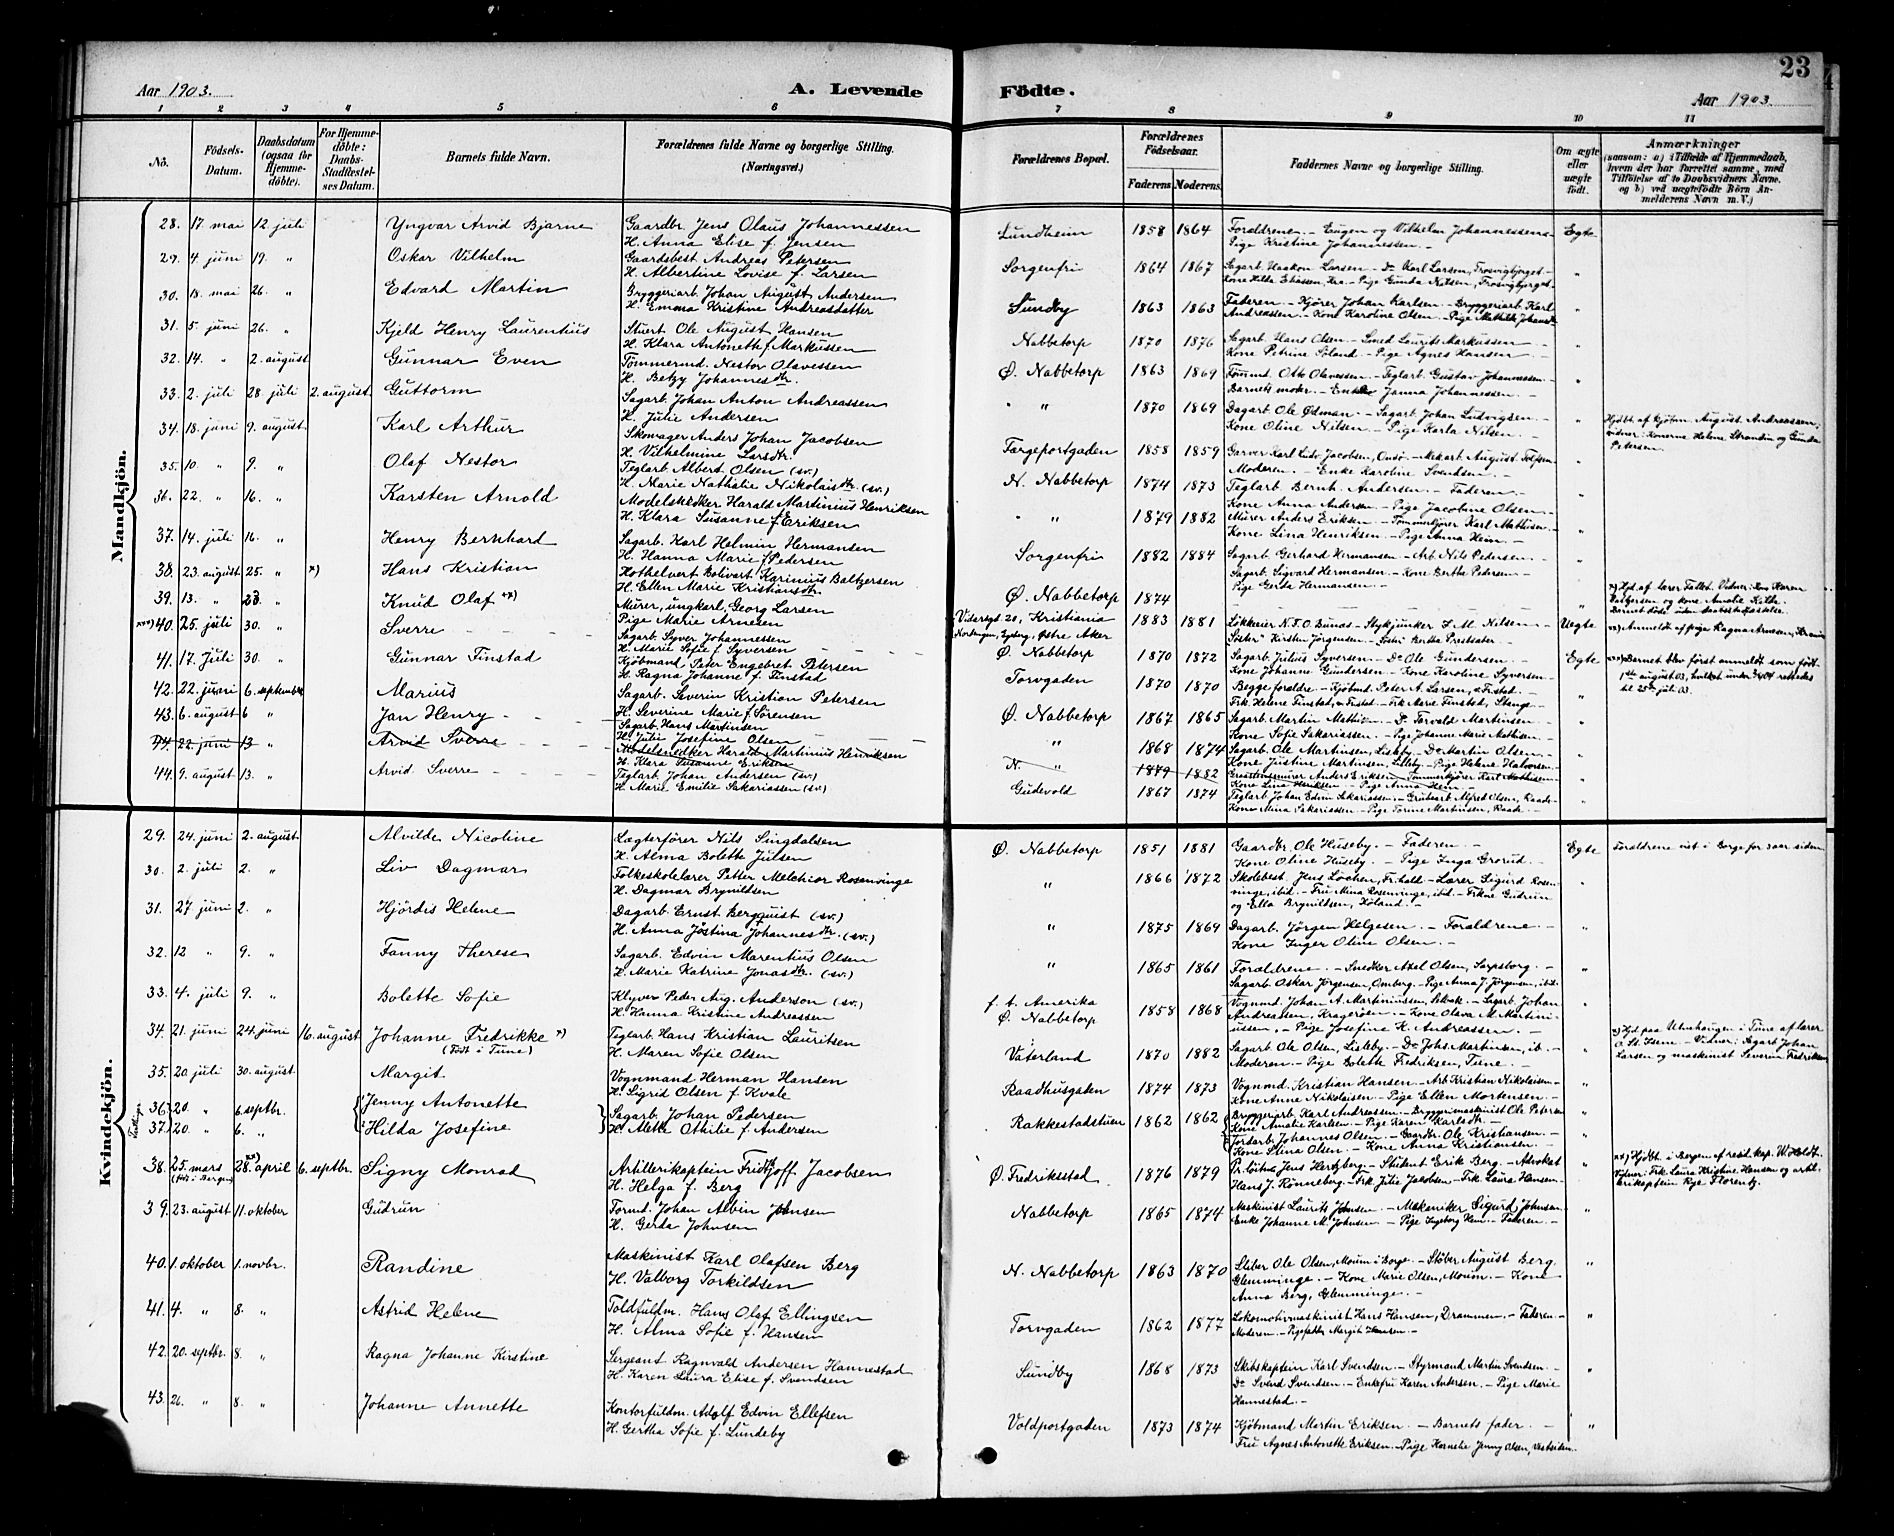 23
Aar 1903.
A. Levende
Födte.
Aar 1903.
1 2 3 4 5 6 7 8 9 10 11
No.
Födsels-Datum.
Daabsdatum (ogsaa for Hjemme-döbte).
For Hjemme-döbte: Daabs-Stadfæstel-ses Datum.
Barnets fulde Navn.
Forældrenes fulde Navne og borgerlige Stilling. (Næringsvei.)
Forældrenes Bopæl.
Forældrenes Födselsaar.
Faderens. Moderens.
Faddernes Navne og borgerlige Stilling.
Om ægte eller uægte födt.
Anmærkninger
(saasom: a) i Tilfælde af Hjemmedaab, hvem der har forrettet samme, med Tilföielse af to Daabsvidners Navne, og b) ved uægtefödte Börn An-melderens Navn m. V.)
Mandkjön.
28. 17. mai 12. juli Yngvar Arvid Bjarne Gaardbr. Jens Olaus Johannessen Lundheim 1858 1864 Forældrene. - Eugen og Vilhelm Johannessen - Egte
H. Anna Elise f. Jensen Pige Kristine Johannessen. -
29. 4. juni 19. " Oskar Vilhelm Gaardsbest. Andreas Petersen Sorgenfri 1864 1867 Sagarb. Haakon Larsen - Do Karl Larsen, Trosvigbjerget - "
H. Albertine Lovise f. Larsen Kone Hilda Eliassen, Kra. - Pige Gunda Nilsen, Trosvigbjerget.
30. 18. mai 26. " Edvard Martin Bryggeriarb. Johan August Andersen Sundby 1863 1863 Faderen. - Kjörer Johan Karlsen - Bryggeriarb. Karl "
H. Emma Kristine Andreasdatter Andreassen - Kone Karoline Olsen - Pige Mathilde
31. 5. juni 26. " Kjeld Henry Laurentius Stuert Ole August Hansen Nabbetorp 1870 1876 Sagarb. Hans Olsen - Smed Laurits Markussen - "
H. Klara Antoneth f. Markussen Kone Petrine Soland - Pige Agnes Hansen -
32. 14. " 2. august Gunnar Even Tömmermd. Nestor Olavessen Ö. Nabbetorp 1863 1869 Tömmd. Otto Olavessen - Teglarb. Gustav Johannessen. - "
H. Betzy Johannesdtr. Barnets moder. - Enke Janna Johannessen -
33. 2. juli 28. juli 2. august Guttorm Sagarb. Johan Anton Andreassen " " 1870 1869 Dagarb. Ole Ödman - Sagarb. Johan Ludvigsen - " Hjdbt. af Kjöbm. August Andreassen,
H. Julie Andersen Kone Oline Nilsen - Pige Karla Nilsen - vidner: Konerne Helene Strandin og Gunda Petersen.
34. 18. juni 9. august Karl Arthur Skomager Anders Johan Jacobsen Færgeportgaden 1858 1859 Garver Karl Ludv. Jacobsen, Onsö - Mekarb. August "
H. Vilhelmine Larsdtr. Moderen. - Enke Karoline Svendsen -
35. 10. " 9. " Olaf Nestor Teglarb. Albert Olsen (sv.) N. Nabbetorp 1874 1873 Teglarb. Bernh. Andersen. - Faderen. - "
H. Marie Nathalie Nikolaisdtr. (sv.) Kone Anna Andersen - Pige Jacobine Olsen -
36. 22. " 16. " Karsten Arnold Modelsnedker Harald Martinius Henriksen " " 1879 1882 Murer Anders Eriksen - Tömmerkjörer Karl Mathisen - "
H. Klara Susanne f. Eriksen Kone Lina Henriksen - Pige Anna Hein -
37. 14. juli 16. " Henry Bernhard Sagarb. Karl Helmin Hermansen Sorgenfri 1882 1884 Sagarb. Gerhard Hermansen - Arb. Nils Pedersen -
H. Hanna Marie f. Pedersen Sagarb. Sigvard Hermansen - Kone Berthe Pedersen -
Pige Gerda Hermansen. -
38. 23. august 25. " x) Hans Kristian Hothelvert Bolivart Karinius Baltzersen Ö. Nabbetorp 1874 x) Hjd. af lærer Vidner:
H. Ellen Marie Kristiansdtr. Baltzersen og kone Amalie
Barnet döde uden daabsstadfæstelse.
39. 13. " 23. " Knud Olaf xx) Murer, ungkarl, Georg Larsen Vidarsgt 20, Kristiania 1883 1881 Stykjunker J. M. Nilsen - Uegte xx) Anmeldt af pige Ragna Arnesen,
Pige Marie Arnesen Östre Aker Söster Kirsten Jörgensen -
xxx) 40. 25. juli 30. " Sverre Sagarb. Syver Johannessen Ö. Nabbetorp 1870 1872 Sagarb. Julius Syversen - Do Ole Gundersen. - Egte xxx) Barnet blev först anmeldt som födt
H. Marie Sofie f. Syversen Kone Johanne Gundersen - Kone Karoline Syversen - 1ste august 03, hvilket under rettedes til 25de juli 03.
41. 17. Juli 30. " Gunnar Finstad Kjöbmand Peter Engebret Petersen Torvgaden 1870 1870 Begge forældre. - Kjöbmd. Peter A. Larsen, Fr.stad. - "
H. Ragna Johanne f. Finstad Frk. Helene Finstad, Fr.stad - Frk. Marie Finstad, Stange -
42. 22. juni 6. september Marius Sagarb. Severin Kristian Petersen Ö. Nabbetorp 1867 1865 Sagarb. Martin Mathisen - Do Torvald Martinsen -
H. Severine Marie f. Sörensen Kone Sofie Sakariassen - Pige Johanne Marie Mathisen -
43. 6. august 6 " Jan Henry Sagarb. Hans Martinsen " 1868 1874 Sagarb. Ole Martinsen, Lisleby - Do Martin Olsen -
H. Julie Josefine Olsen Kone Justine Martinsen, Lisleby - Pige Helene Halvorsen -
44. 22. juni 13 " Arvid Sverre Modelsnedker Harald Martinius Henriksen N. " 1879 1882 Anders Eriksen - Tömmerkjörer Karl Mathisen -
H. Klara Susanne Eriksen Kone Lina Henriksen - Pige Anna Hein -
44. 9. august 13. " Arvid Sverre Teglarb. Johan Andersen (sv.) Gudevold 1867 1874 Teglarb. Johan Edvin Sakariassen - Grubearb. Alfred Olsen, Raade - "
H. Marie Emilie Sakariassen (sv.) Kone Mina Sakariassen - Pige Torine Martinsen, Raade. -
Kvindekjön.
29. 24. juni 2. august Alvilde Nicoline Lægterförer Nils Singdalsen Ö. Nabbetorp 1851 1881 Gaardbr. Ole Huseby. - Faderen. - Egte Forældrene viet i Borge for 3 aar siden.
H. Alma Bolette Julsen Kone Oline Huseby. - Pige Inga Grorud. -
30. 2. juli 2. " Liv Dagmar Folkeskolelærer Petter Melchior Rosenvinge " 1866 1872 Skolebest. Jens Lochen, Fr.hald. - Lærer Sigurd Rosen- "
H. Dagmar Brynildsen vinge, ibid. - Fru Mina Rosenvinge, ibid. - Frkne Gudrun
og Ella Brynildsen, Höland. -
31. 27 juni 2. " Hjördis Helene Dagarb. Ernst Bergquist (sv.) " 1875 1869 Dagarb. Jörgen Helgesen. - Forældrene - "
H. Anna Jöstina Johannesdtr. (sv.) Kone Inger Oline Olsen. -
32. 12 " 9. " Fanny Therese Sagarb. Edvin Marentius Olsen " 1865 1861 Forældrene. - Snedker Axel Olsen, Sarpsborg. - "
H. Marie Katrine Jonasdtr. (sv.) Sagarb. Oskar Jörgensen, Omberg. - Pige Anna J. Jörgensen, ibid.
33. 4. juli 9. " Bolette Sofie Klyver Peder Aug. Anderson (sv.) f. t. Amerika 1858 1868 Vognmd. Johan A. Martiniussen, Selbak. - Sagarb. Johan "
H. Hanna Kristine Andreassen Ö. Nabbetorp Andreassen, Krageröen. - Kone Olava M. Martini-
ussen, - Pige Josefine K. Andreassen. -
34. 21. juni 24. juni 16. august Johanne Fredrikke x) Teglarb. Hans Kristian Lauritsen Vaterland 1870 1882 Sagarb. Ole Olsen, Lisleby. - Do Johs. Martinsen, ib. - " x) Hjd. paa i Tune af lærer
(Födt i Tune) H. Maren Sofie Olsen Moderen. - Pige Bolette Fredriksen, Tune. - Vidner: Sagarb. Johan
Larsen og maskinist Severin Fredriksen
35. 20. juli 30. august Margit Vognmand Herman Hansen Raadhusgaden 1874 1873 Vognmd. Kristian Hansen - Arb. Kristian Nikolaisen - "
H. Sigrid Olsen f. Kvale Kone Anne Nikolaisen - Pige Ellen Mortensen. -
Tvillinger
36. 20. " 6. septbr. Jenny Antonette Sagarb. Johan Pedersen Rakkestadstuen 1862 1862 Bryggeriarb. Karl Andreassen - Bryggerimaskinist Ole Petersen "
37. 20. " 6. " Hilda Josefine H. Mette Othilie f. Andersen Kone Amalie Karlsen - Pige Karen Karlsdtr. -
Jordarb. Johannes Olsen - Gaardbr. Ole Kristiansen. -
Kone Stina Olsen - Kone Anna Kristiansen -
38. 25. mars 28. xx) april 6. septbr. Signy Monrad Artillerikaptein Fridtjoff Jacobsen Ö. Fredriksstad 1876 1879 Pr.lötnt. Jens Hertzberg - Student Erik Berg. - Advokat " xx) Hjdbt. i Bergen af resid. kap. W. Holdt.
(födt i Bergen) H. Helga f. Berg Hans J. Rönneberg - Frk. Julie Jacobsen - Frk. Laura Hansen - Vidner: Frk. Laura Kristine Hansen og artil-
lerikaptein Rye Florentz.
39. 23. august 11. oktober Gudrun Formd. Johan Albin Johnsen Nabbetorp 1865 1874 Maskinist Laurits Johnsen - Mekaniker Sigurd Johnsen "
H. Gerda Johnsen Enke Johanne M. Johnsen - Pige Ingeborg Hein - Faderen. -
40. 1. oktober 1. novbr. Randine Maskinist Karl Olafsen Berg N. Nabbetorp 1863 1870 Sliber Ole Olsen, Moum i Borge. - Stöber August Berg, "
H. Valborg Torkildsen Glemminge. - Kone Marie Olsen, Moum. - Kone
Anna Berg, Glemminge. -
41. 4. " 8. " Astrid Helene Toldfuldm. Hans Olaf Ellingsen Torvgaden 1862 1877 Lokomotivmaskinist Hans Hansen, Drammen. - Faderen. - "
H. Alma Sofie f. Hansen Moderen. - Margit Hansen. -
42. 20. septbr. 8. " Ragna Johanne Kirstine Sergeant Ragnvald Andersen Hannestad Sundby 1868 1873 Skibskaptein Karl Svendsen. - Styrmand Martin Svendsen. - "
H. Karen Laura Elise f. Svendsen Do Svend Svendsen. - Enkefru Karen Andersen. - Pige Marie
Hannestad. -
43. 26. " 8. " Johanne Annette Kontorfuldm. Adolf Edvin Ellefsen Voldportgaden 1873 1874 Kjöbmand Martin Eriksen. - Barnets fader. - "
H. Gertha Sofie f. Lundeby Fru Agnes Antonette Eriksen - Pige Kornelie Jenny Olsen, Vestsiden.